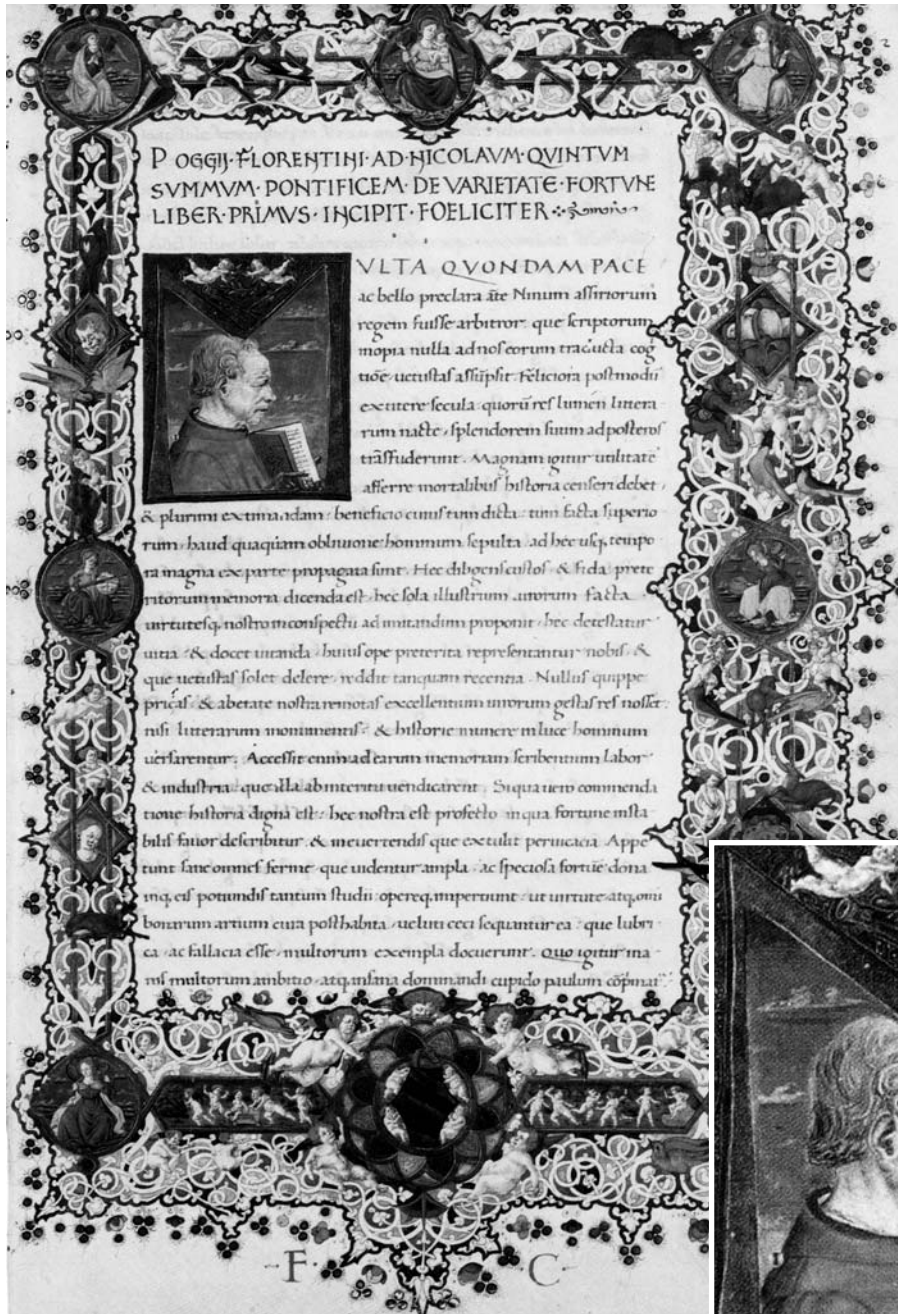 POGGIJ·FLORENTINI·AD·NICOLAVM·QVINTVM
SVMMVM·PONTIFICEM·DE VARIETATE·FORTVNE
LIBER·PRIMVS·INCIPIT·FOELICITER
VLTA QVONDAM PACE
ac bello preclara āte Ninum assiriorum
regem fuisse arbitror· que scriptorum
inopia nulla ad nos eorum traducta cog
tiōe uetustas assūpsit· Feliciora postmodū
extitere secula· quorū res lumen littera
rum nacte· splendorem suum ad posteros
trāsfuderunt· Magnam igitur utilitatē
afferre mortalibus historia censeri debet·
& plurimi extimādam· beneficio cuius tum dicta· tum facta superio
rum· haud quaquam obliuione hominum sepulta· ad hec usq; tempo
ra magna ex parte propagata sunt· Hec diligens custos· & fida prete
ritorum memoria dicenda est· hec sola illustrium uirorum facta
uirtutesq; nostro in conspectu ad imitandum proponit· hec detestatur
uitia· & docet uitanda· huius ope preterita representantur nobis· &
que uetustas solet delere· reddit tanquam recentia· Nullus quippe
priscas· & ab etate nostra remotas excellentum uirorum gestas res nosset·
nisi litterarum monumentis· & historie munere in luce hominum
uersarentur· Accessit enim ad earum memoriam scribentum labor
& industria· que illa ab interitu uendicarent· Siqua uero commenda
tione historia digna est· hec nostra est profecto in qua fortune insta
bilis fauor describitur· & in euertendis que extulit peruicacia· Appe
tunt sane omnes ferme· que uidentur ampla· ac speciosa fortūe dona
inq; eis potiundis tantum studii· opereq; impertiunt· ut uirtute atq; omī
bonarum artium cura posthabita· ueluti ceci sequantur ea· que lubri
ca· ac fallacia esse· multorum exempla docuerunt· Quo igitur ina
nis multorum ambitio· atq; insana dominandi cupido paulum
F· C